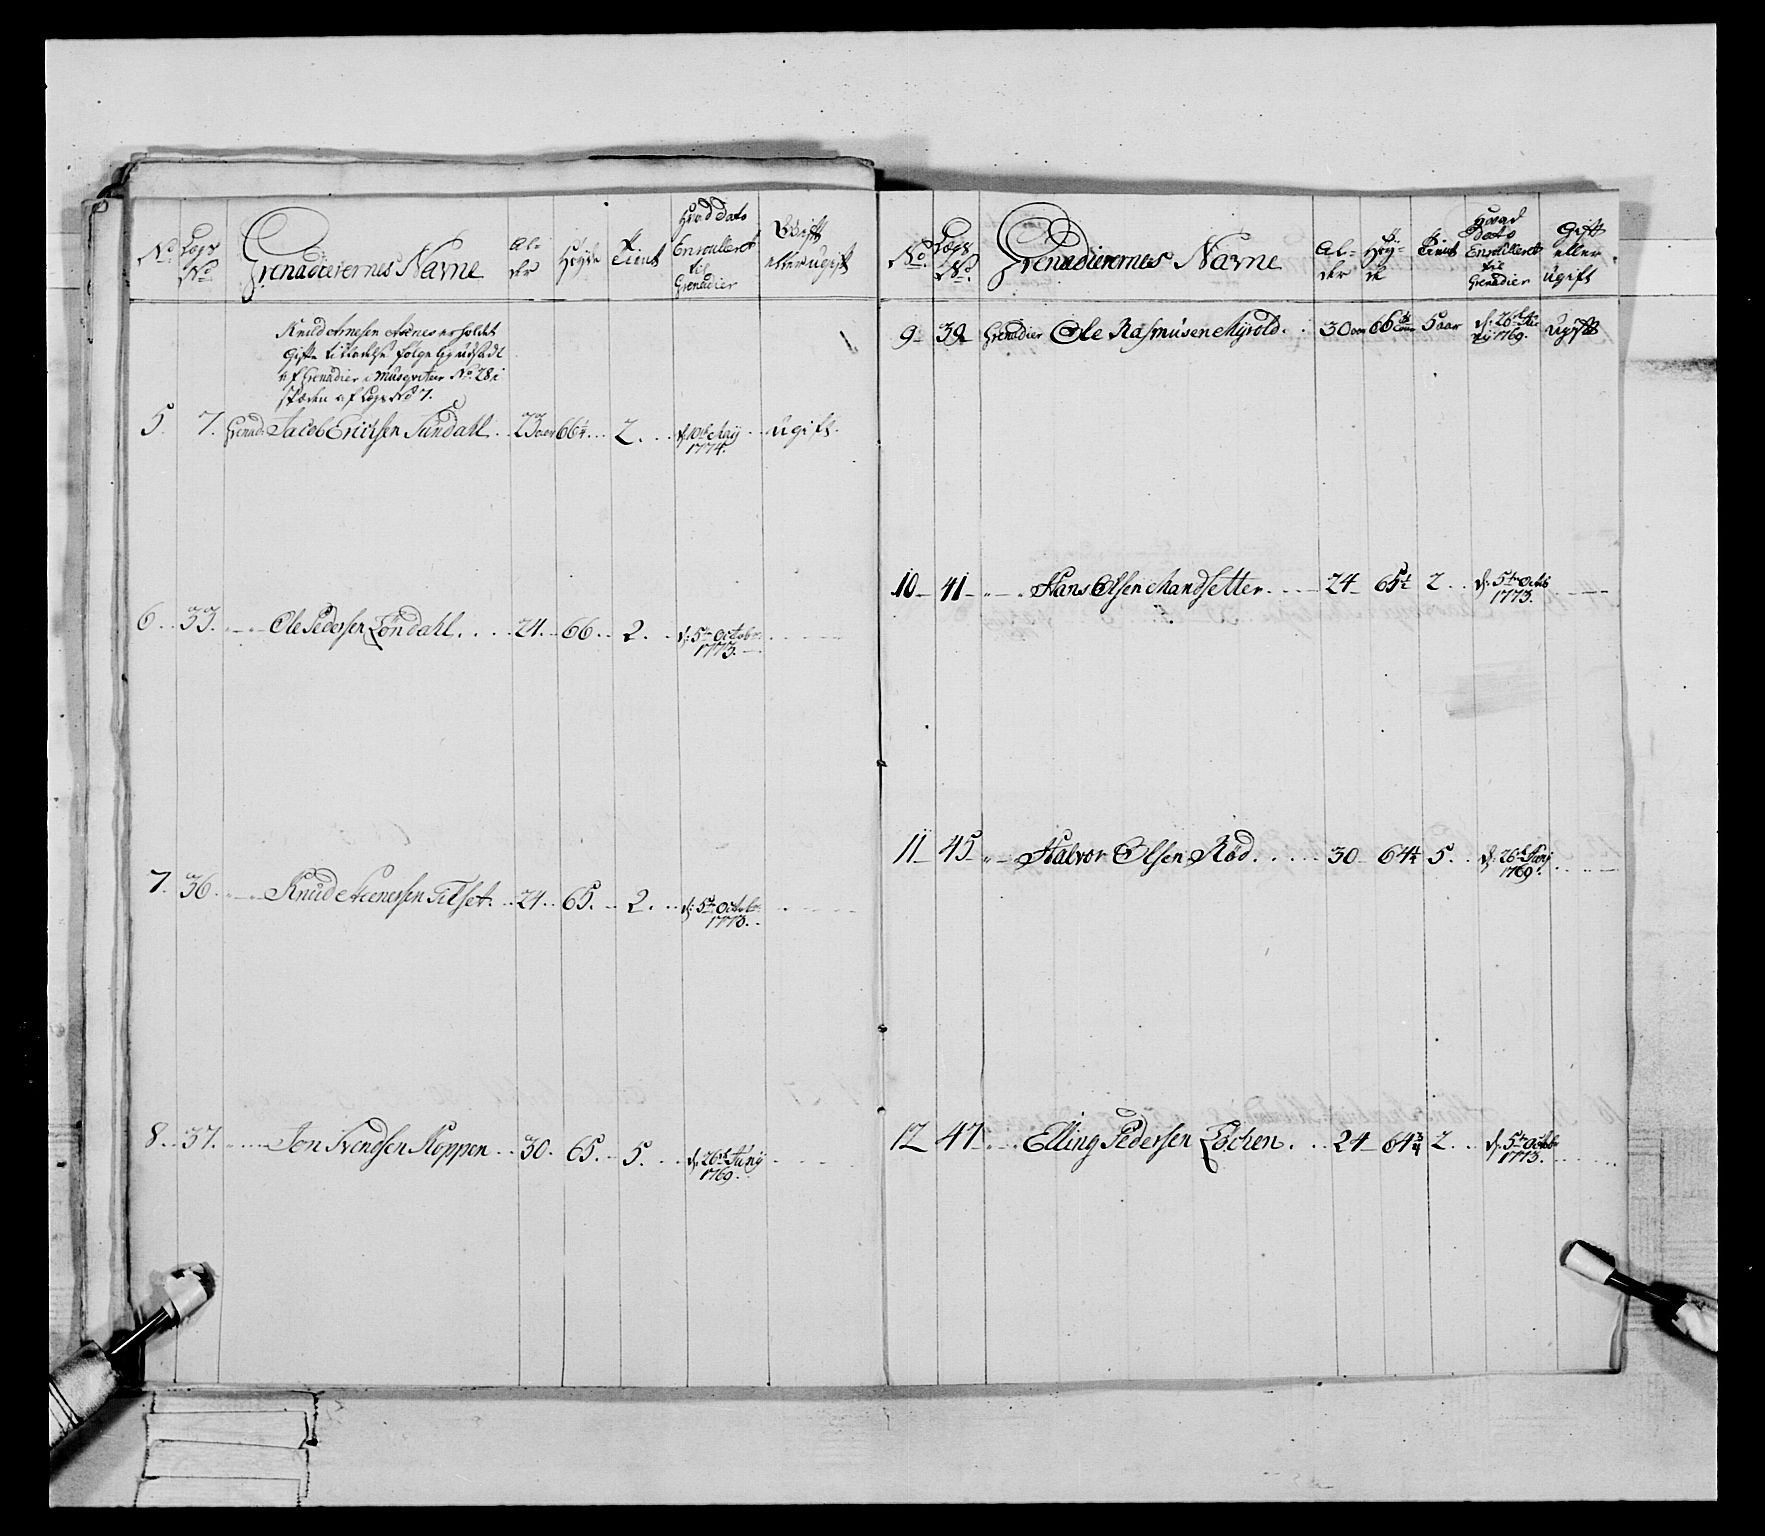 No. Lægs No. Grenadierernes Navne Al- der Høyde Tient Hvad dato Enroulleret til Grenadier Gift eller ugift
Knud Arnesen Aspnes erholdet
Gifte
af Grenadier Musqveteer No. 28 i
stæden af Lægs No 7.
5. 7. Grenad. Jacob Erichsen Sundahl .. 23 aar 66 1/4 ... 2 ... d: 10de Maij 1774. .. ugift.
6 .. 33. " Ole Pedersen Londahl .... 24 .. 66 .. 2 ... d: 5te Octobr. 1773.
7. 36. " Knud Arnesen Tilset .. 24 .. 65 .. 2 ... d: 5te Octobr. 1773.
8 .. 37. " Jon Svendsen Koppen .. 30. 65 .. 5 ... d: 26de Junij 1769.
No. Lægs No. Grenadierernes Navne Al- der Høy- de Tient Hvad dato Enroulleret til Grenadier Gift eller ugift
9 - 39 Grenadier Ole Rasmusen Myrold .. 30 aar 66 5 aar d: 26de Ju- nij 1769. ugift
10 - 41 - " Hans Olsen Mandsetter .... 24 - 65 1/4 2 .. d: 5te Octob 1773.
11 - 45 - " Halvor Olsen Rød .... 30 - 64 1/4 5 .. d: 26de Junij 1769.
12 47 - " Elling Pedersen Løchen ... 24 - 64 3/4 2 ... d: 5te Octobr 1773.